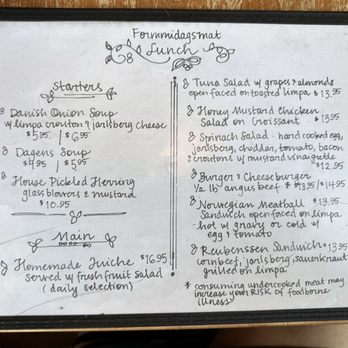 Formmidagsmat
Lunch
Starters
Danish Onion Soup
w/ limpa crouton & jarlsberg cheese
$5.95 | $6.95
Dagens Soup
$4.95 | $5.95
House Pickled Herring
glass blovers & mustard
$10.95
Main
Homemade Quiche $16.95
served w/ fresh fruit salad
(daily selection)
Tuna Salad w/ grapes & almonds
open faced on toasted limpa $13.95
Honey Mustard Chicken
Salad on Croissant $13.95
Spinach Salad - hard cooked egg,
jarlsberg, cheddar, tomato, bacon
& croutons w/ mustard vinaigrette
$12.95
Burger & Cheeseburger
1/2 lb angus beef * $13.95/$14.95
Norwegian Meatball $13.95
Sandwich open faced on limpa
hot w/ gravy or cold w/
egg & tomato
Reubenssen Sandwich $13.95
cornbeef, jarlsberg, sauerkraut
grilled on limpa
* consuming undercooked meat may
increase your RISK of foodborne
illness